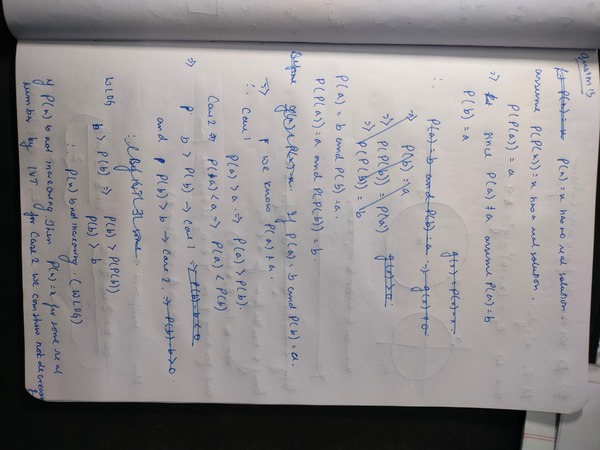 Question 13
P(x) = x have no real solution.
assume P(P(x)) = x has a real solution.
P(P(a)) = a
⇒ Since P(a) ≠ a assume P(a) = b
P(b) = a
∴ P(a) = b and P(b) = a ⇒ g(x) ≠ 0
g(x) = P(x) - x
⇒ P(b) = a
⇒ P(P(b)) = P(a)
⇒ P(P(b)) = b
g(x) > 0
P(a) = b and P(b) = a.
P(P(a)) = a and P(P(b)) = b.
Define g(x) = P(x) - x. If P(a) = b and P(b) = a.
⇒ we know P(a) ≠ a.
∴ Case 1 P(a) > a. ⇒ P(a) > P(b).
Case 2 ⇒ P(a) < a ⇒ P(a) < P(b)
⇒ b > P(b) → Case 1 ⇒ P(b) - b < 0
and P(b) > b → Case 2. ⇒ P(b) - b > 0.
WLOG
b > P(b) ⇒ P(b) > P(P(b))
P(b) > b
∴ P(x) is not increasing. (WLOG)
If P(x) is not increasing then P(x) = x for some real
number by IVT for Case 2 we can show not decreasing